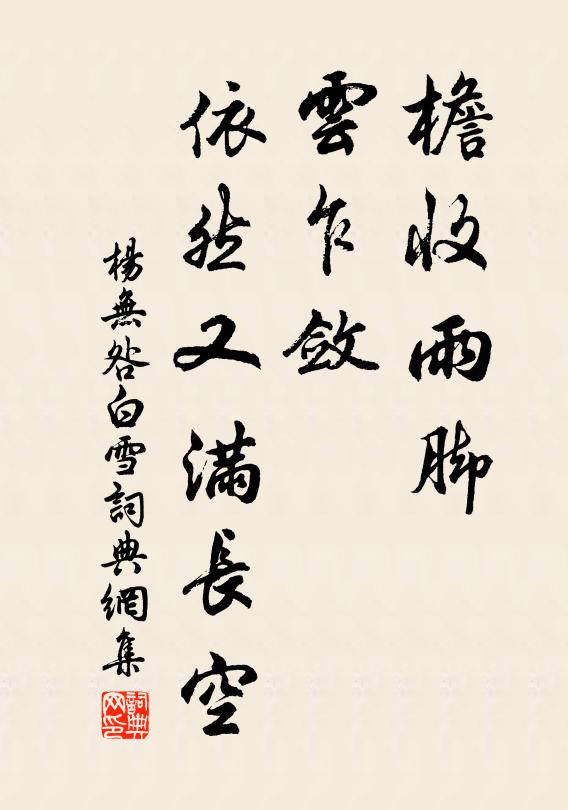 檐收雨脚
雲乍斂
依然又滿長空
楊無咎白雪詞典網集
詞典网印